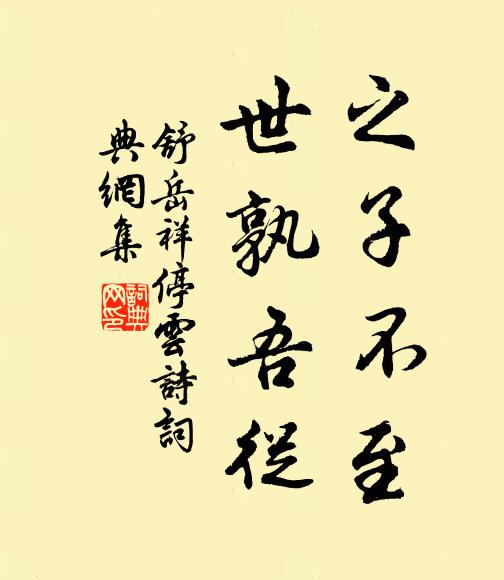 之子不至
世孰吾從
舒岳祥停雲詩詞
典網集
詞典
网印